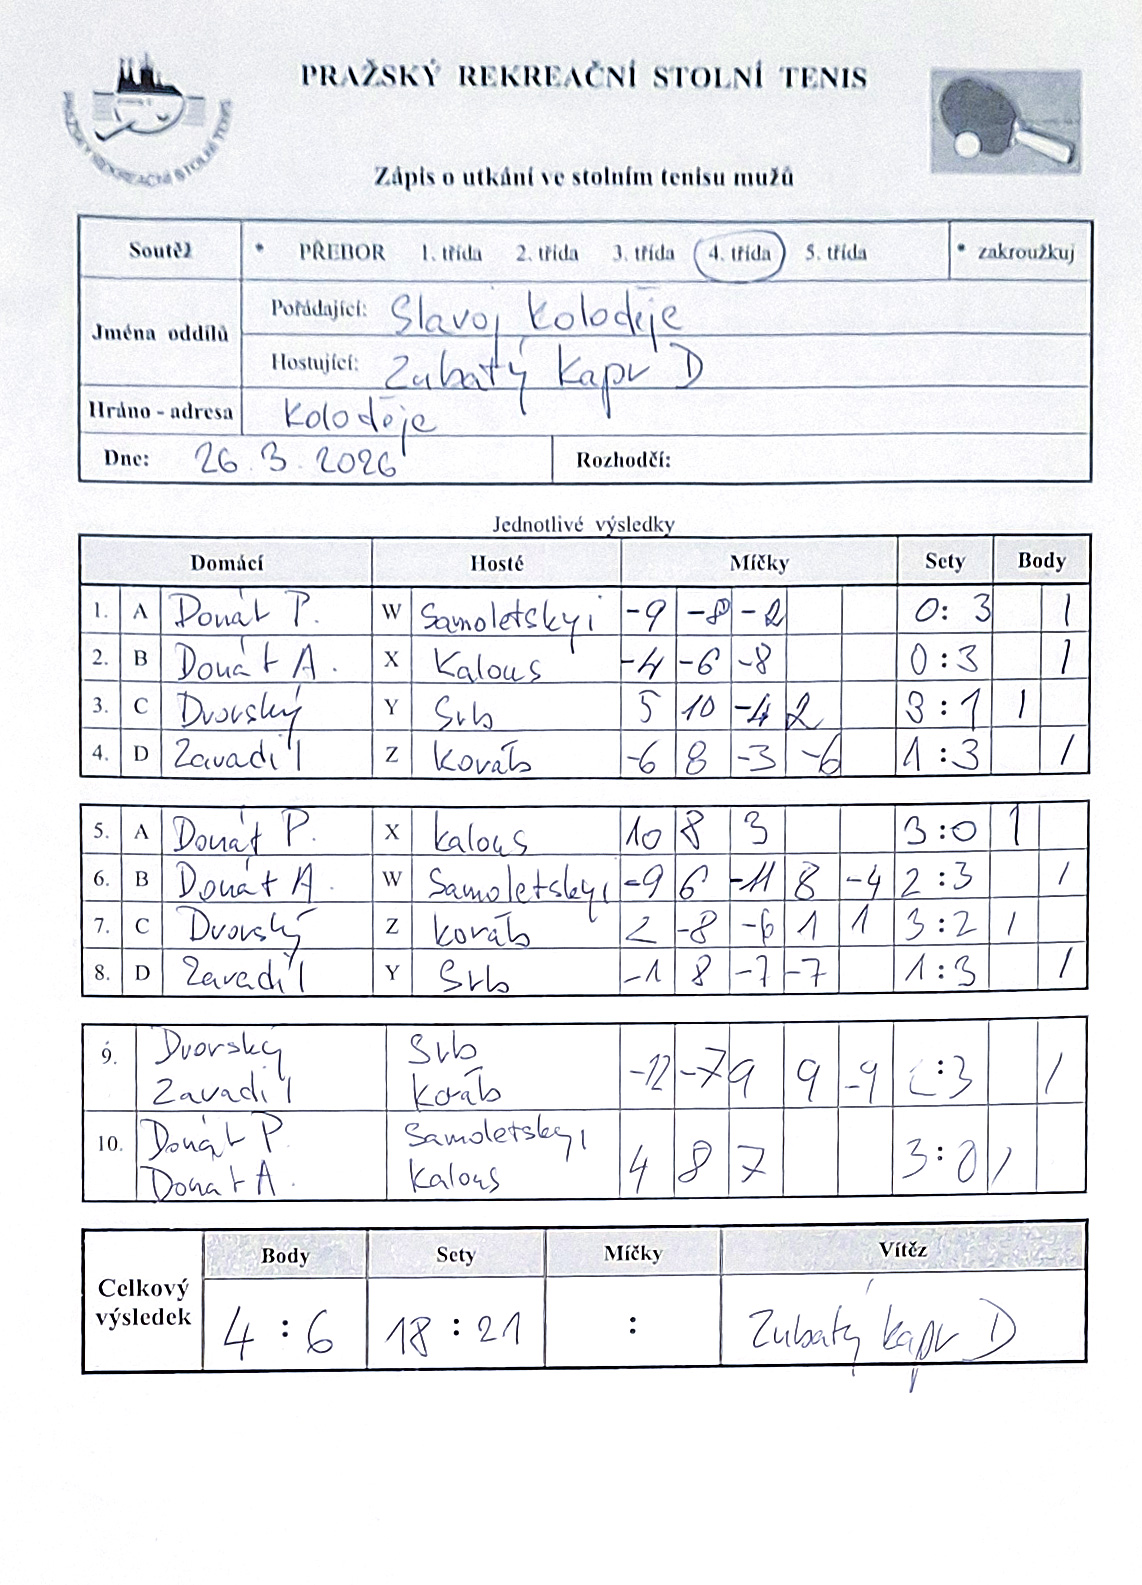 PRAŽSKÝ REKREAČNÍ STOLNÍ TENIS
PRAŽSKÝ REKREAČNÍ STOLNÍ TENIS
Zápis o utkání ve stolním tenisu mužů
Soutěž * PŘEBOR 1. třída 2. třída 3. třída 4. třída 5. třída * zakroužkuj
Jména oddílů
Pořádající: Slavoj Koloděje
Hostující: Zubatý kapr D
Hráno - adresa Koloděje
Dne: 26.3.2026 Rozhodčí:
Jednotlivé výsledky
Domácí Hosté Míčky Sety Body
1. A Donát P. W Samoletskyi -9 -8 -2 0:3 1
2. B Donát A. X Kalous -4 -6 -8 0:3 1
3. C Dvorský Y Srb 5 10 -4 2 3:1 1
4. D Zavadil Z Kováb -6 8 -3 -6 1:3 1
5. A Donát P. X Kalous 10 8 3 3:0 1
6. B Donát A. W Samoletskyi -9 6 -11 8 -4 2:3 1
7. C Dvorský Z Kováb 2 -8 -6 1 1 3:2 1
8. D Zavadil Y Srb -1 8 -7 -7 1:3 1
9. Dvorský Srb
Zavadil Kováb -12 -7 9 9 -9 :3 1
10. Donát P. Samoletskyi
Donát A. Kalous 4 8 7 3:0 1
Celkový výsledek
Body Sety Míčky Vítěz
4:6 18:21 : Zubatý kapr D